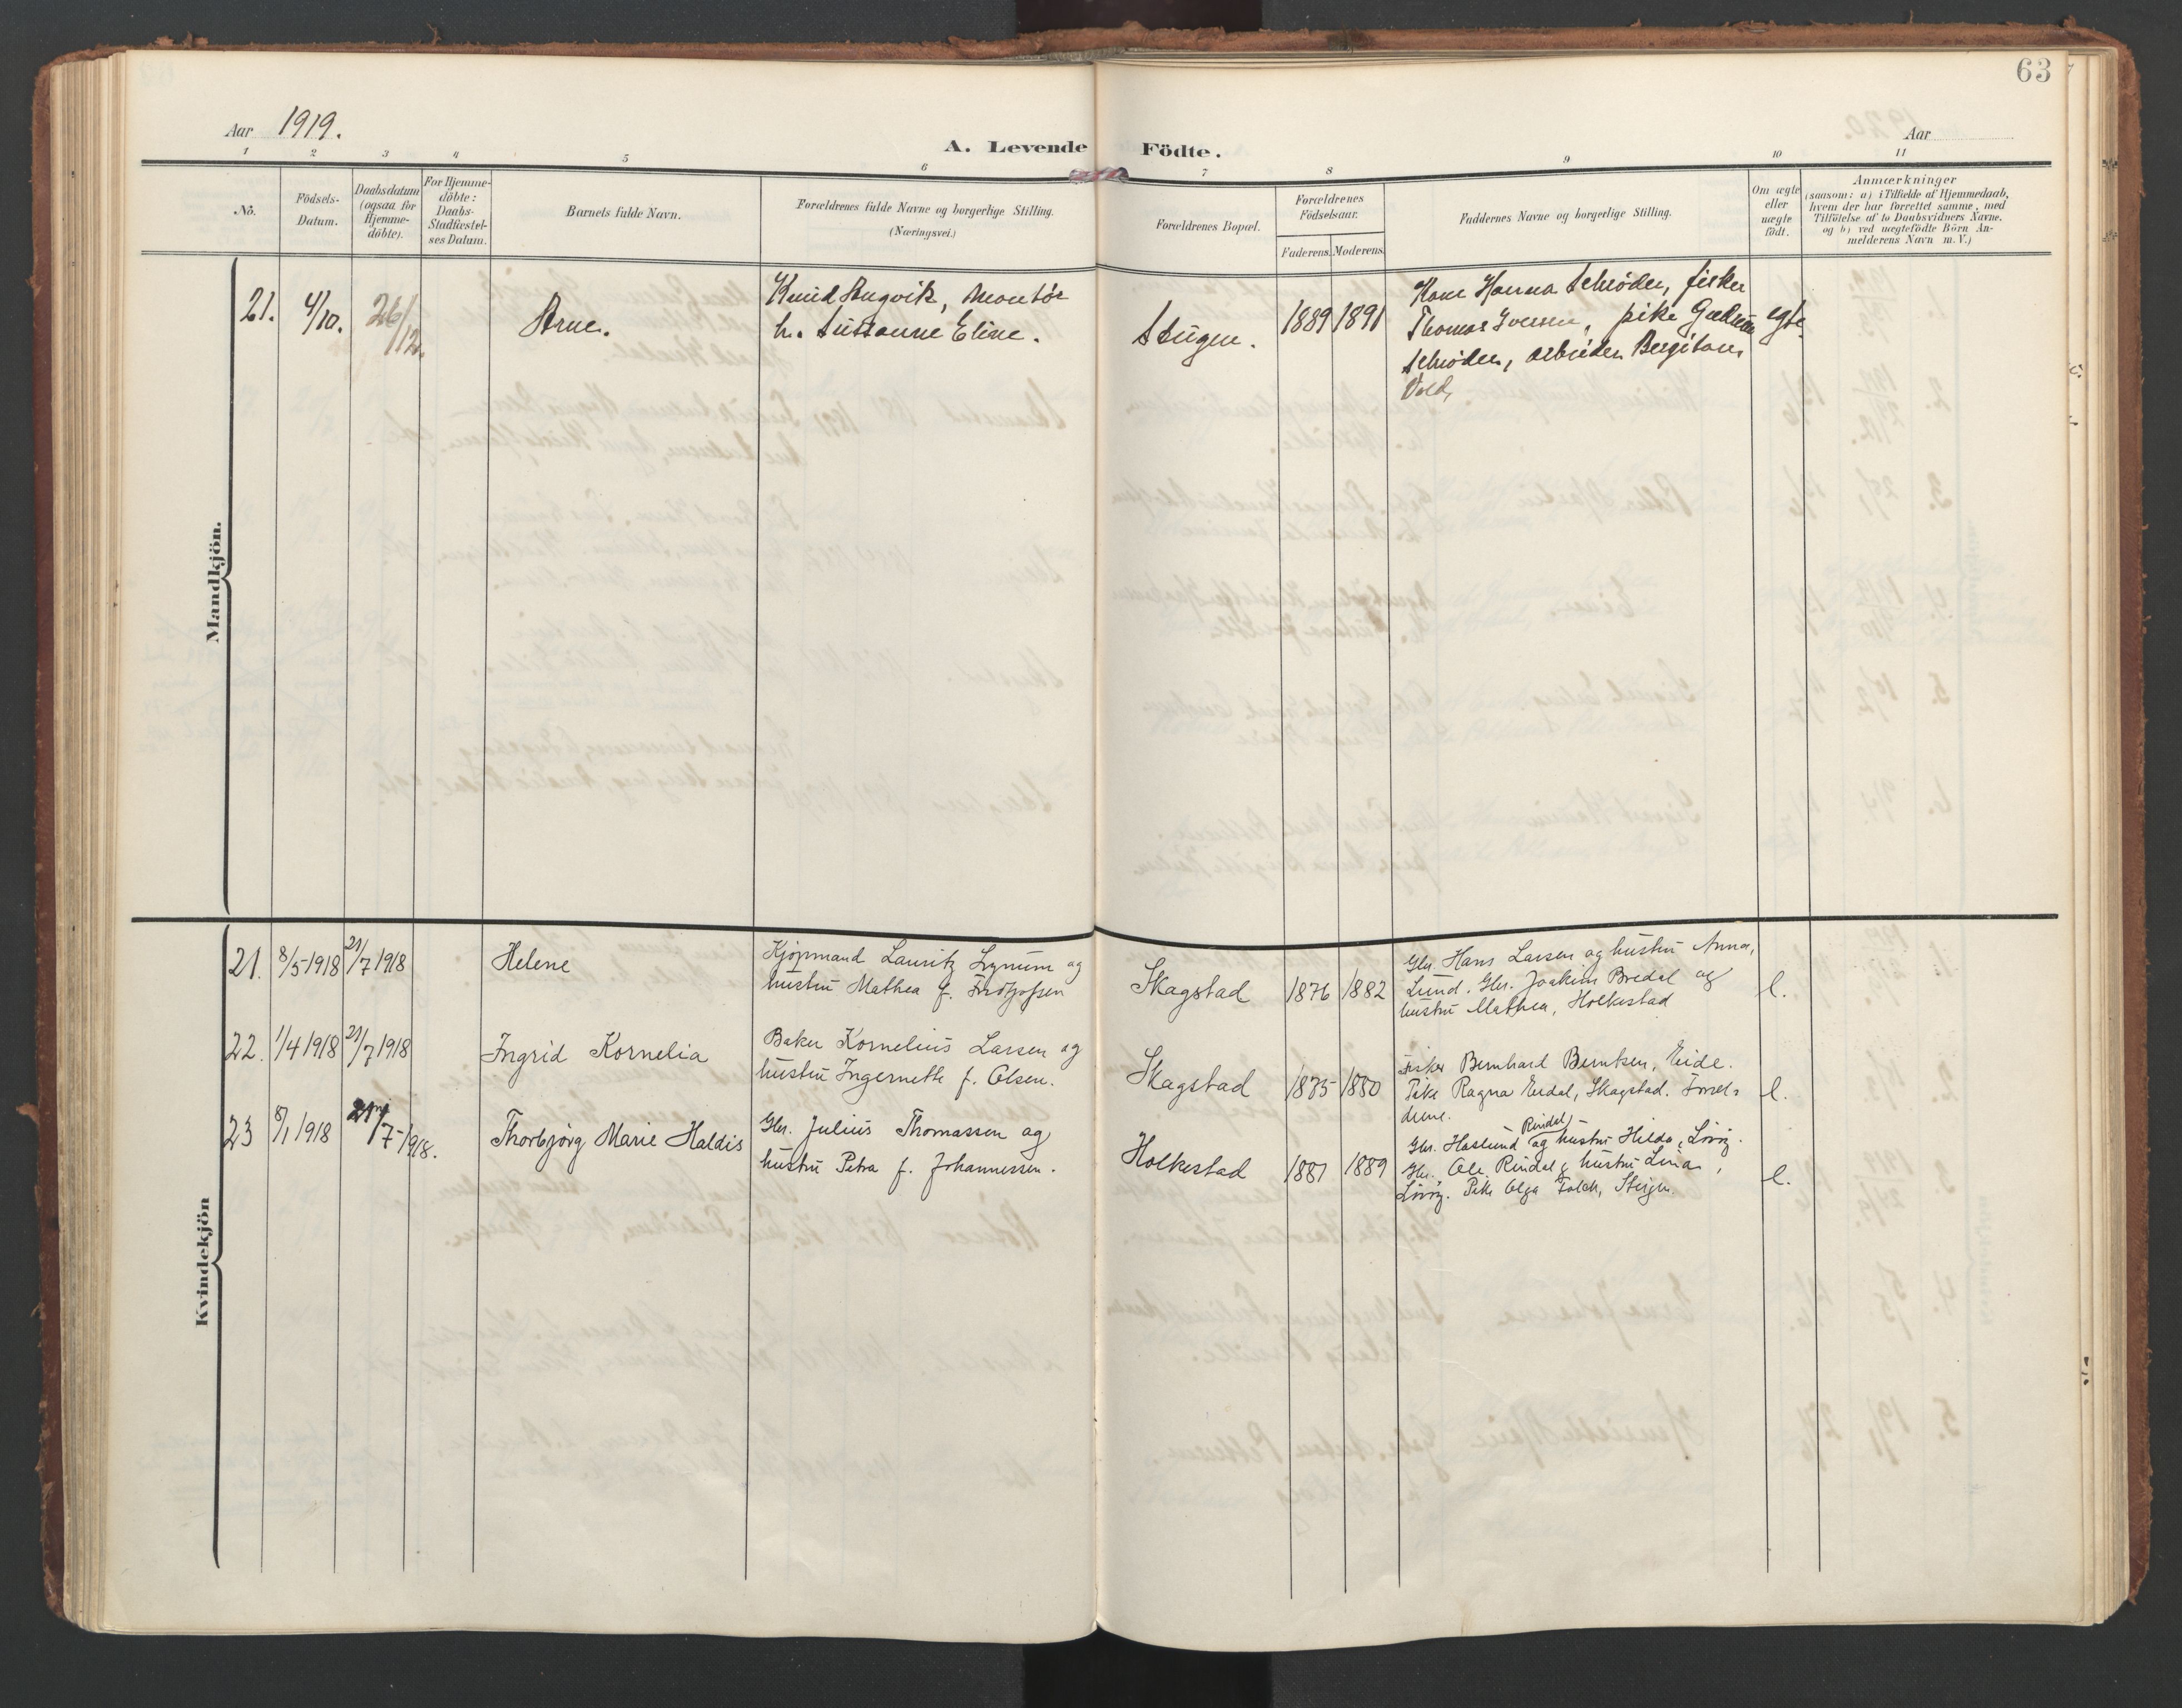 63
Aar 1919.
A. Levende Födte.
Aar
1 2 3 4 5 6 7 8 9 10 11
No.
Födsels-
Datum.
Daabsdatum
(ogsaa for
Hjemme-
döbte).
For Hjemme-
döbte:
Daabs-
Stadfæstel-
ses Datum.
Barnets fulde Navn.
Forældrenes fulde Navne og borgerlige Stilling.
(Næringsvei.)
Forældrenes Bopæl.
Forældrenes
Födselsaar.
Faderens. Moderens.
Faddernes Navne og borgerlige Stilling.
Om ægte
eller
uægte
födt.
Anmærkninger
(saasom: a) i Tilfælde af Hjemmedaab,
hvem der har forrettet samme, med
Tilföielse af to Daabsvidners Navne.
og b) ved uægtefödte Börn An-
melderens Navn m. V.)
Mandkjön.
21. 4/10. 26/12. Arne.
Knud , Montör
h. Sussanne Eline.
Steigen. 1889 1891
Kone Hanna Schröder, fisker
Thomas Iversen, pike Gudrun
Schröder, arbeider
Vold,
egte.
Kvindekjön
21. 8/5 1918 21/7 1918 Helene
Kjöpmand Lauritz Lynum og
hustru Mathea f. Fridtjofsen
Skagstad 1876 1882
Gbr. Hans Larsen og hustru Anna,
Lund. Gbr. Joakim Bredal og
hustru Mathea, Holkestad
e.
22. 1/4 1918 21/7 1918 Ingrid Kornelia
Baker Kornelius Larsen og
hustru Ingernette f. Olsen.
Skagstad 1875 1880
Fisker Bernhard Berntsen, Eide.
Pike Ragna Eidal, Skagstad. Foreld-
rene.
e.
23 8/1 1918 21/7 1918. Thorbjörg Marie Haldis
Gbr. Julius Thomassen og
hustru Petra f. Johannessen.
Holkestad 1881 1889
Rindal
Gbr. Haslund og hustru Hilda, Löviz.
Gbr. Ole Rindal & hustru Lina,
Löviz. Pike Olga Falch, Steigen.
e.